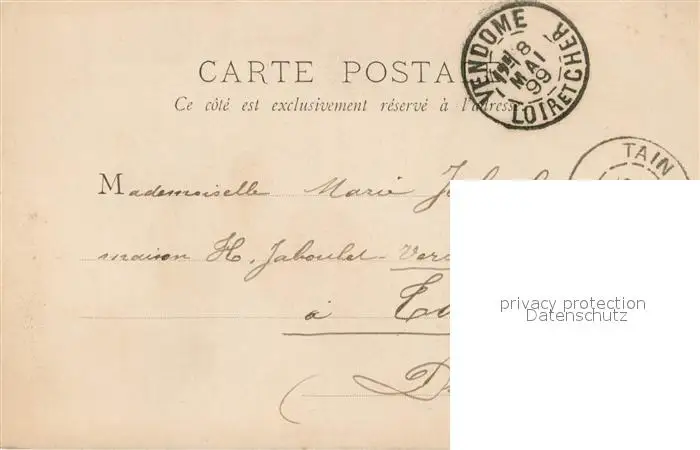 CARTE POSTA
Ce côté est exclusivement réservé à l'adresse
VENDOME
8
MAI
99
LOIR ET CHER
TAIN
Mademoiselle Marie
maison H. Jaboulet-
à
privacy protection
Datenschutz